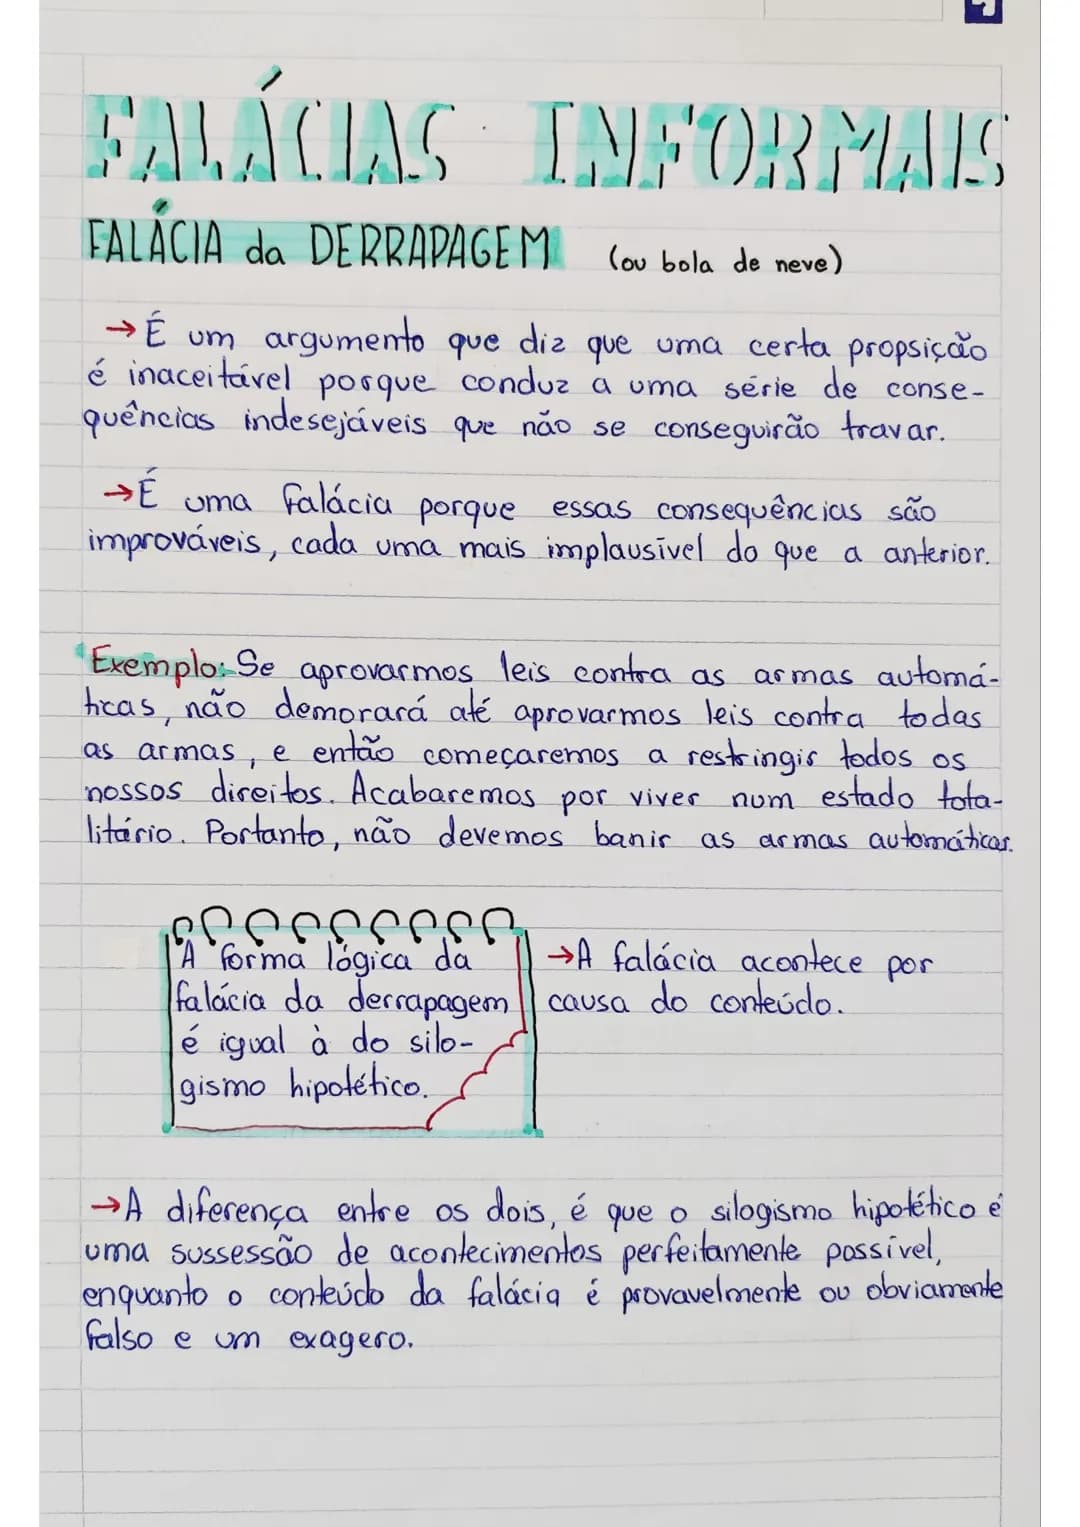 FALÁCIAS INFORMAIS
FALÁCIA da DERRAPAGEM (ou bola de neve)
→ É um argumento que diz que uma certa propsição
é inaceitável porque conduz a uma série de conse-
quências indesejáveis que não se conseguirão travar.
→ É uma falácia porque essas consequências são
improváveis, cada uma mais implausível do que a anterior.
Exemplo: Se aprovarmos leis contra as armas automá-
ticas, não demorará até aprovarmos leis contra todas
as armas, e então começaremos a restringir todos os
nossos direitos. Acabaremos por viver num estado tota-
litário. Portanto, não devemos banir as armas automáticas.
A forma lógica da
falácia da derrapagem
é igual à do silo-
gismo hipotético.
→ A falácia acontece por
causa do conteúdo.
→ A diferença entre os dois, é que o silogismo hipotético é
uma sussessão de acontecimentos perfeitamente possível,
enquanto o conteúdo da falácia é provavelmente ou obviamente
falso e um exagero.